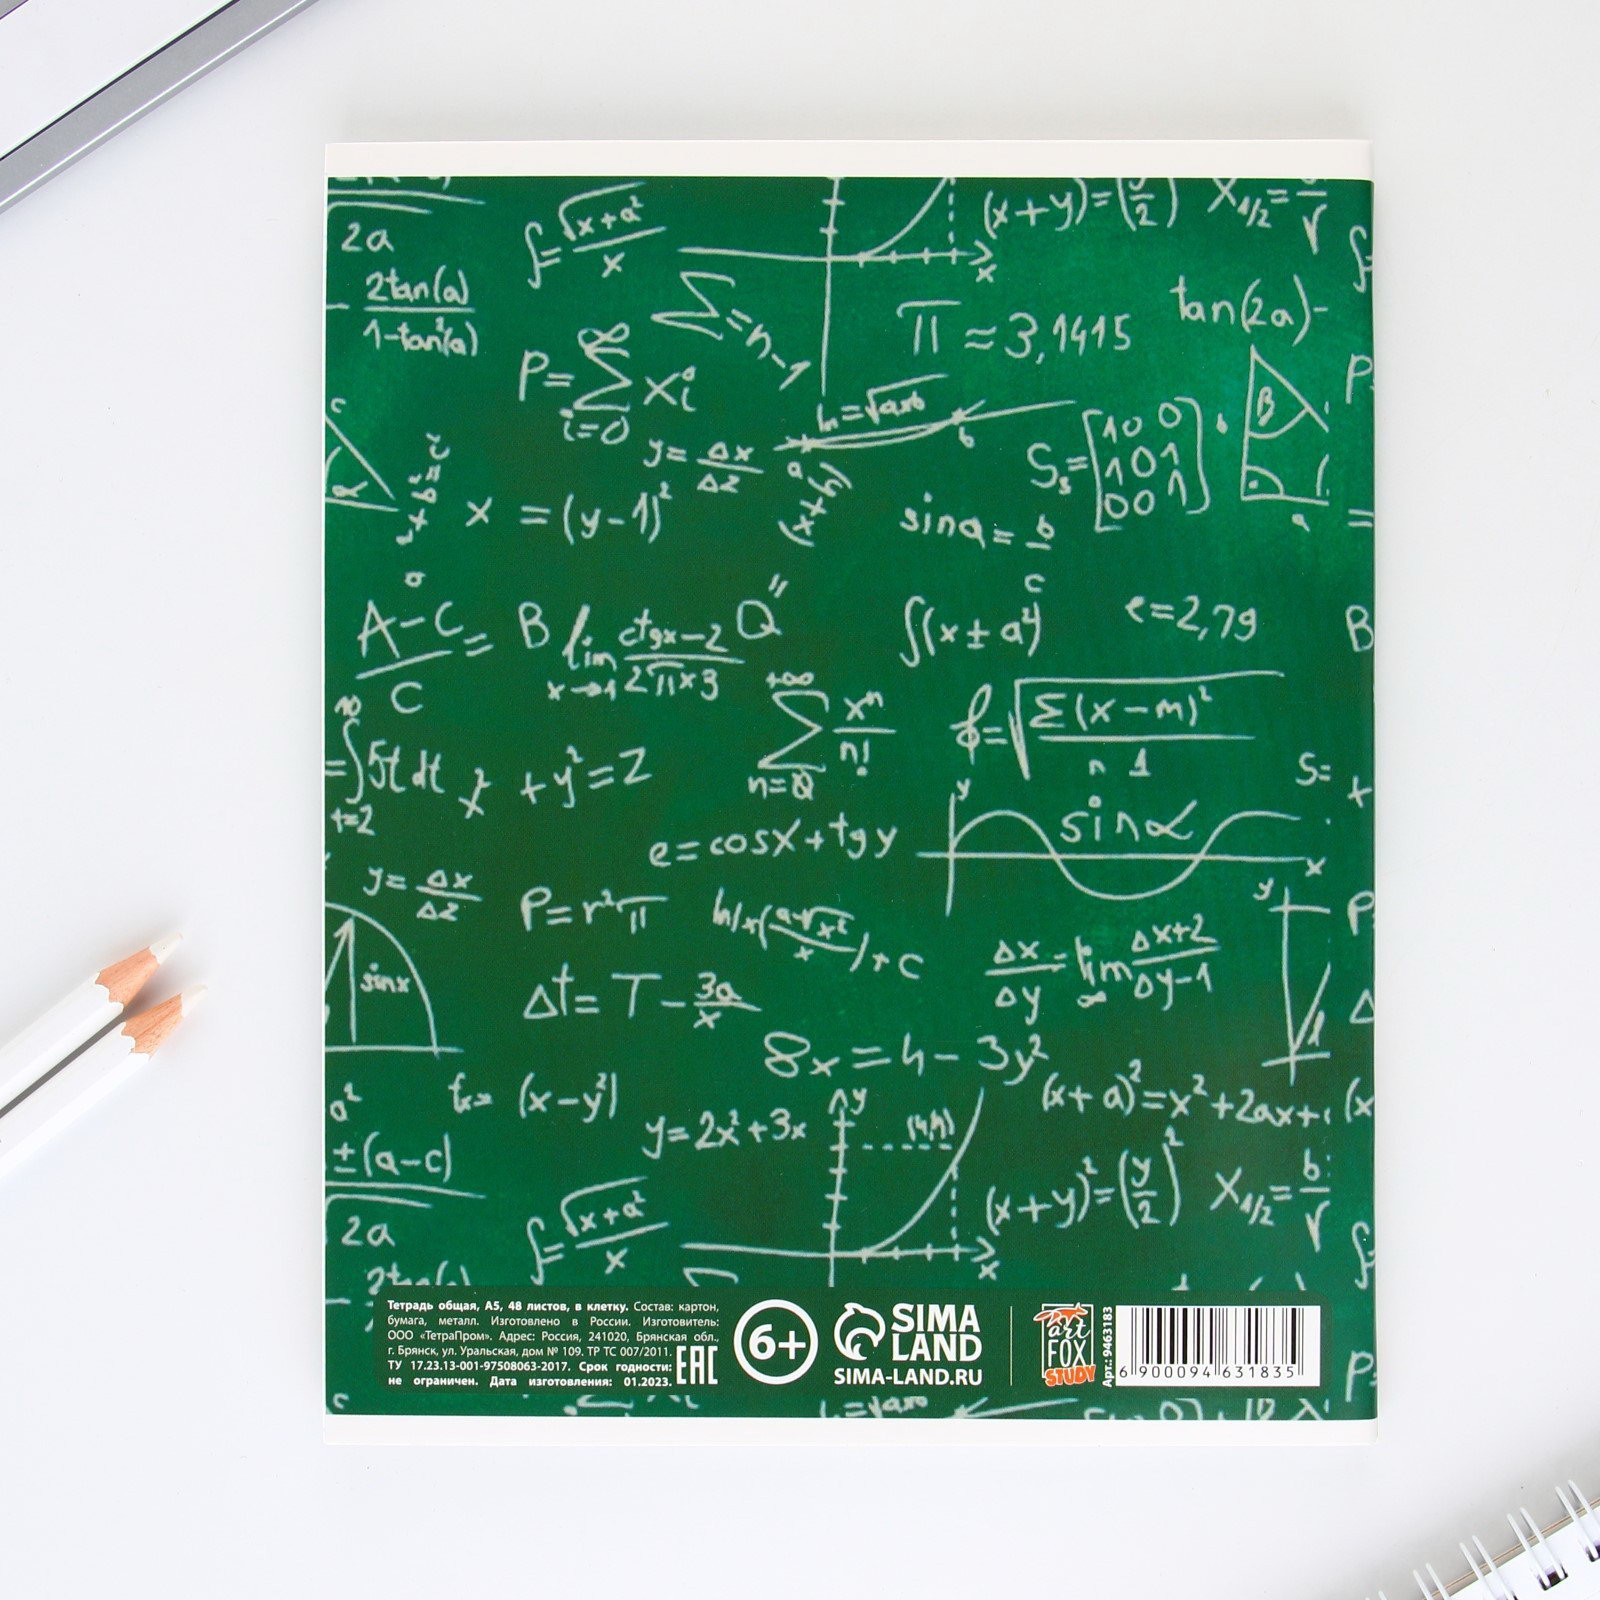 (x+y)=(y/2) X₁/₂=
2a
∫=√(x+a²)/x
x
2tan(a)/1-tan²(a)
Σ=n-1
π≈3,1415
tan(2a)-
P=
∞
P=Σ Xi
i=0
h=√a×b
y=Δx/Δz
a
b
B
c
α
a
x = (y-1)²
(x+y)
sina= b/c
S₅=[10 0
101
00 1]
A-C/C = B
lim ctgx-2/2πx3
x→1
Q"
∫(x±a²)
e=2,79
B
+∞
Σ xⁿ/n!
n=0
=∫5tdt
t=2
x² +y²=Z
=√Σ(x-m)²
n 1
S=
x
y
sinα
x
e=cosx+tgy
y=Δx/Δz
P=r²π
ln/x(a-√x²/x)+c
Δx/Δy=lim Δx+2/Δy-1
∞
y
P=
sinx
Δt= T-3a/x
Δ
8x=4-3y²
a²
tₓ= (x-y²)
y=2x²+3x
y
(x+a)²=x²+2ax+
(x
±(a-c)
2a
∫=√(x+a²)/x
x
(x+y)²=(y/2)²
X₁/₂=b/r
Тетрадь общая, А5, 48 листов, в клетку. Состав: картон,
бумага, металл. Изготовлено в России. Изготовитель:
ООО «ТетраПром». Адрес: Россия, 241020, Брянская обл.,
г. Брянск, ул. Уральская, дом № 109. ТР ТС 007/2011.
ТУ 17.23.13-001-97508063-2017. Срок годности:
не ограничен. Дата изготовления: 01.2023.
EAC
6+
SIMA
LAND
SIMA-LAND.RU
art
FOX
STUDY
Арт.: 9463183
6 900094 631835